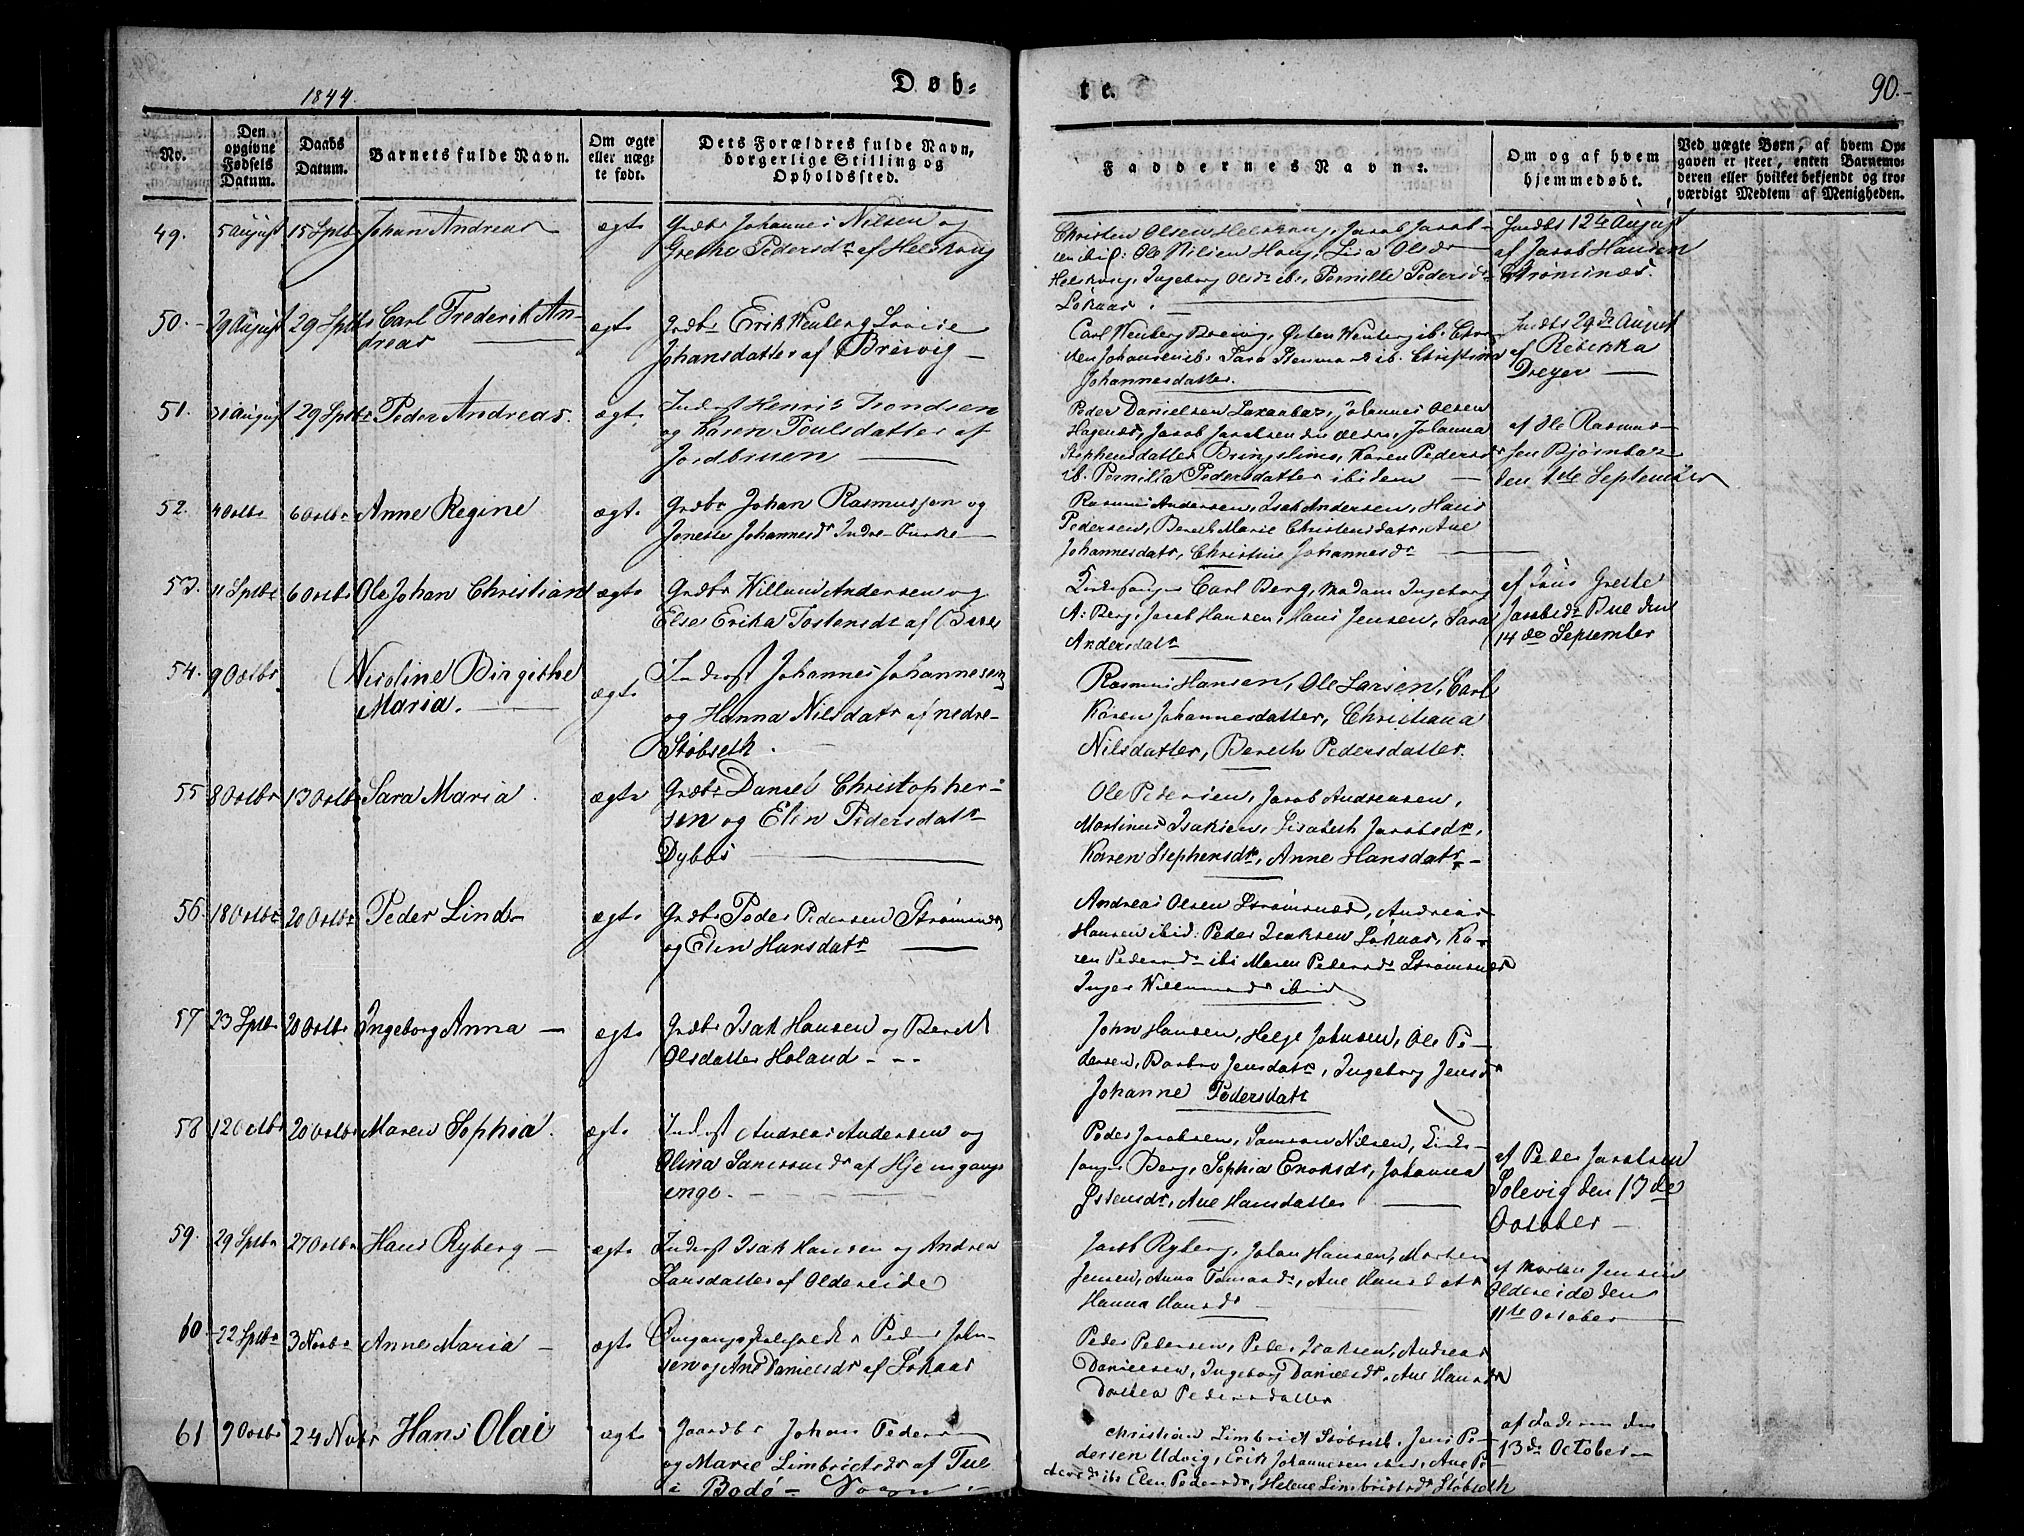 1844.
Døb-
te.
90.
No.
Den opgivne Fødsels Datum.
Daabs Datum.
Barnets fulde Navn.
Om ægte eller uæg-te født.
Dets Forældres fulde Navn, borgerlige Stilling og Opholdssted.
Faddernes Navne.
Om og af hvem hjemmedøbt.
Ved uægte Børn, af hvem Op-gaven er skeet, enten Barnemo-deren eller hvilket bekjendt og tro-værdigt Medlem af Menigheden.
49. 5 August 15 Sptbr Johan Andreas ægte
Grdbr Johannes Nilsen og
Grethe Pedersdr af
Christen Olsen
Ole Nilsen Haug, Lisa Olsdr
Ingeborg Olsdr ib. Pernille Pedersdr
Løkaas.
12te August
af Jacob Hansen
Strømsnæs
50. 29 August 29 Sptbr Carl Frederik An-
dreas
ægt
Grdbr Erik Wenberg
Johansdatter af Breivig
Carl Wenberg Breivig, Østen Wenberg ib.
Johansen ib. Sara ib. Christina
Johannesdatter.
29de August
af Rebekka
Dreyer
51. 31 August 29 Sptbr Peder Andreas. ægt.
Inderst Henrik Trondsen
og Karen Poulsdatter af
Jordbruen
Peder Danielsen Johannes Olsen
Jacob Jacobsen den ældre, Johanna
Stephensdatter Karen Pedersdr
ib. Pernilla Pedersdatter ibidem
af Ole Rasmus-
sen
den 1ste September
52. 4 Octbr 6 Octbr Anne Regine ægt.
Grdbr Johan Rasmussen og
Johannesdr Indre
Rasmus Andersen, Isak Andersen, Hans
Pedersen, Bereth Marie Christensdatr, Ane
Johannesdatr, Christine Johannesdr
53. 11 Sptbr 6 Octbr Ole Johan Christian ægt
Grdbr Willum Andersen og
Else Erika Tostensdr af Bue
Carl Berg, Madam Ingeborg
A: Berg, Jacob Hansen, Hans Jensen, Sara
Andersdatr
af Grethe
Jacobsdr Bue den
14de September
54. 9 Octbr Nicoline Birgithe
Maria.
ægt
Inderst Johannes Johannesen
og Hanna Nilsdatr af nedre
Støbseth.
Rasmus Hansen, Ole Larsen, Carl
Karen Johannesdatter, Christiana
Nilsdatter, Bereth Pedersdatter.
55 8 Octbr 13 Octbr Sara Maria. ægte
Grdbr Daniel Christopher-
sen og Elen Pedersdatr
Ole Pedersen, Jacob Andreasen,
Martinus Isaksen, Lisabeth Jacobsdr,
Karen Stephensdr, Anne Hansdatr
56 18 Octbr 20 Octbr Peder Lind ægt
Grdbr Peder Pedersen Strømsnæs
og Elen Hansdatr
Andreas Olsen Strømsnæs, Andreas
Hansen ibid: Peder Isaksen Løkaas, Ka-
ren Pedersdr ib: Maren Pedersdr Strømsnæs
Inger Willumsdr ibid
57 23 Sptbr 20 Octbr Ingeborg Anna ægt
Grdbr Isak Hansen og Bereth
Olsdatter Høland
John Hansen, Helge Johnsen, Ole Pe-
dersen, Barbro Jensdatr, Ingeborg Jensdr
Johanne Pedersdatr
58 12 Octbr 20 Octbr Maren Sophia. ægt
Inderst Andreas Andersen og
Olina Samsonsdr af Hjemgangs
enge.
Peder Jacobsen, Samson Nilsen,
Berg, Sophia Enoksdr, Johanna
Østensdr, Ane Hansdatter
af Peder Jacobsen
Solevig den 13de
October
59. 29 Sptbr 27 Octbr Hans Ryberg ægt
Inderst Isak Hansen og Andrea
Hansdatter af Oldereide
Jacob Ryberg, Johan Hansen, Morten
Jensen, Anna Ane Hansdatr
Hanna Hansdr
af Morten Jensen
Oldereide den
11te October
60 22 Sptbr 3 Novbr Anne Maria ægt
Peder John-
sen og Ane Danielsdr af Løkaas
Peder Pedersen, Peder Isaksen, Andreas
Danielsen, Ingeborg Danielsdr, Ane Hansdr
Dortea Pedersdatter
61 9 Octbr 24 Novbr Hans Olai ægt
Gaardbr Johan Pedersen
og Marie Limbrichtsdr af Tue
i Bodø Sogn
Christian Limbricht Støbseth, Jens Pe-
dersen Udvig, Erik Johannesen ibid, Ane Pe-
dersdr ib: Elen Pedersdr, Helene Limbrichtsdr Støbseth
af Faderen den
13de October